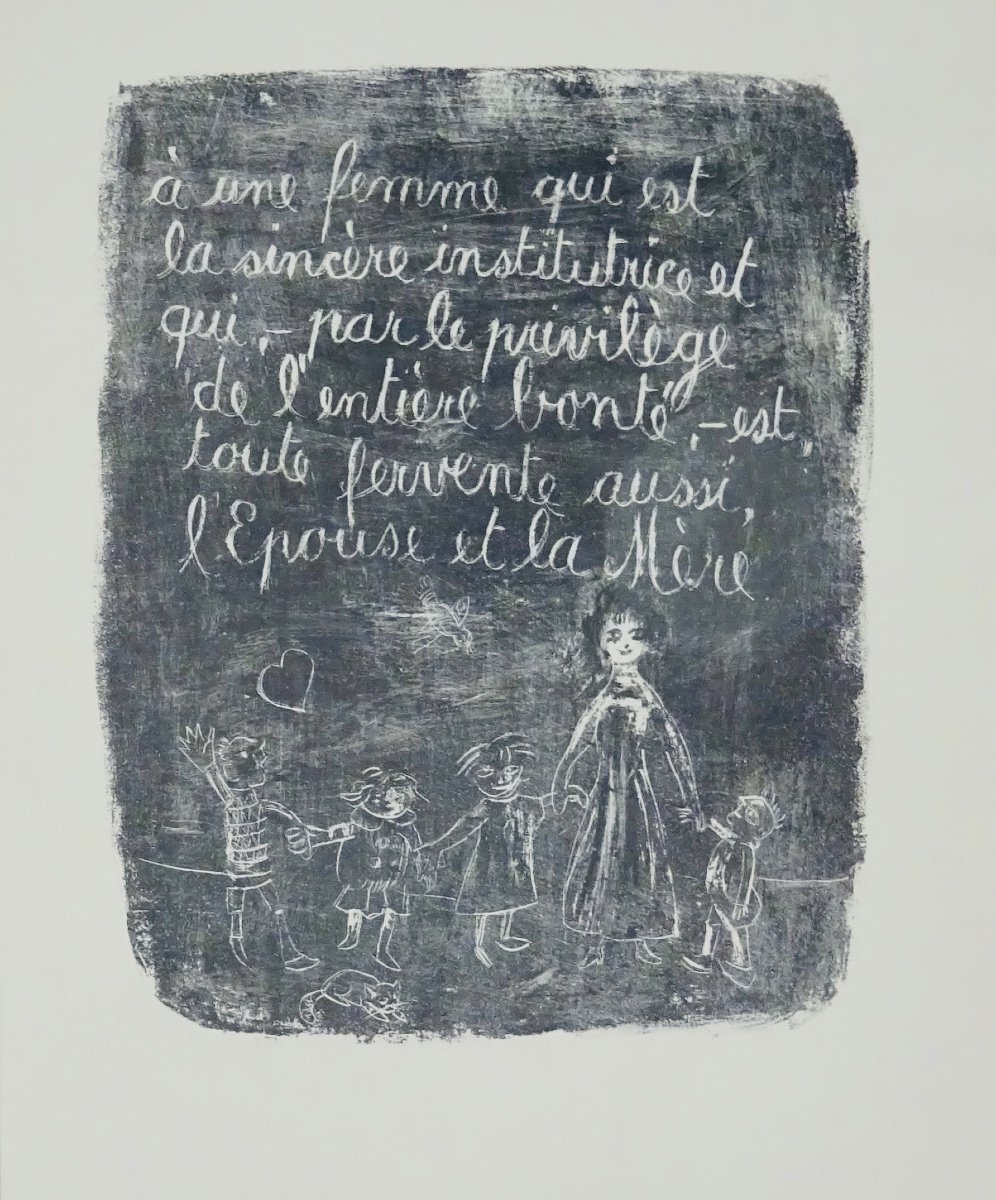 à une femme qui est
la sincère institutrice et
qui, – par le privilège
de l'entière bonté, – est,
toute fervente aussi,
l'Epouse et la Mère